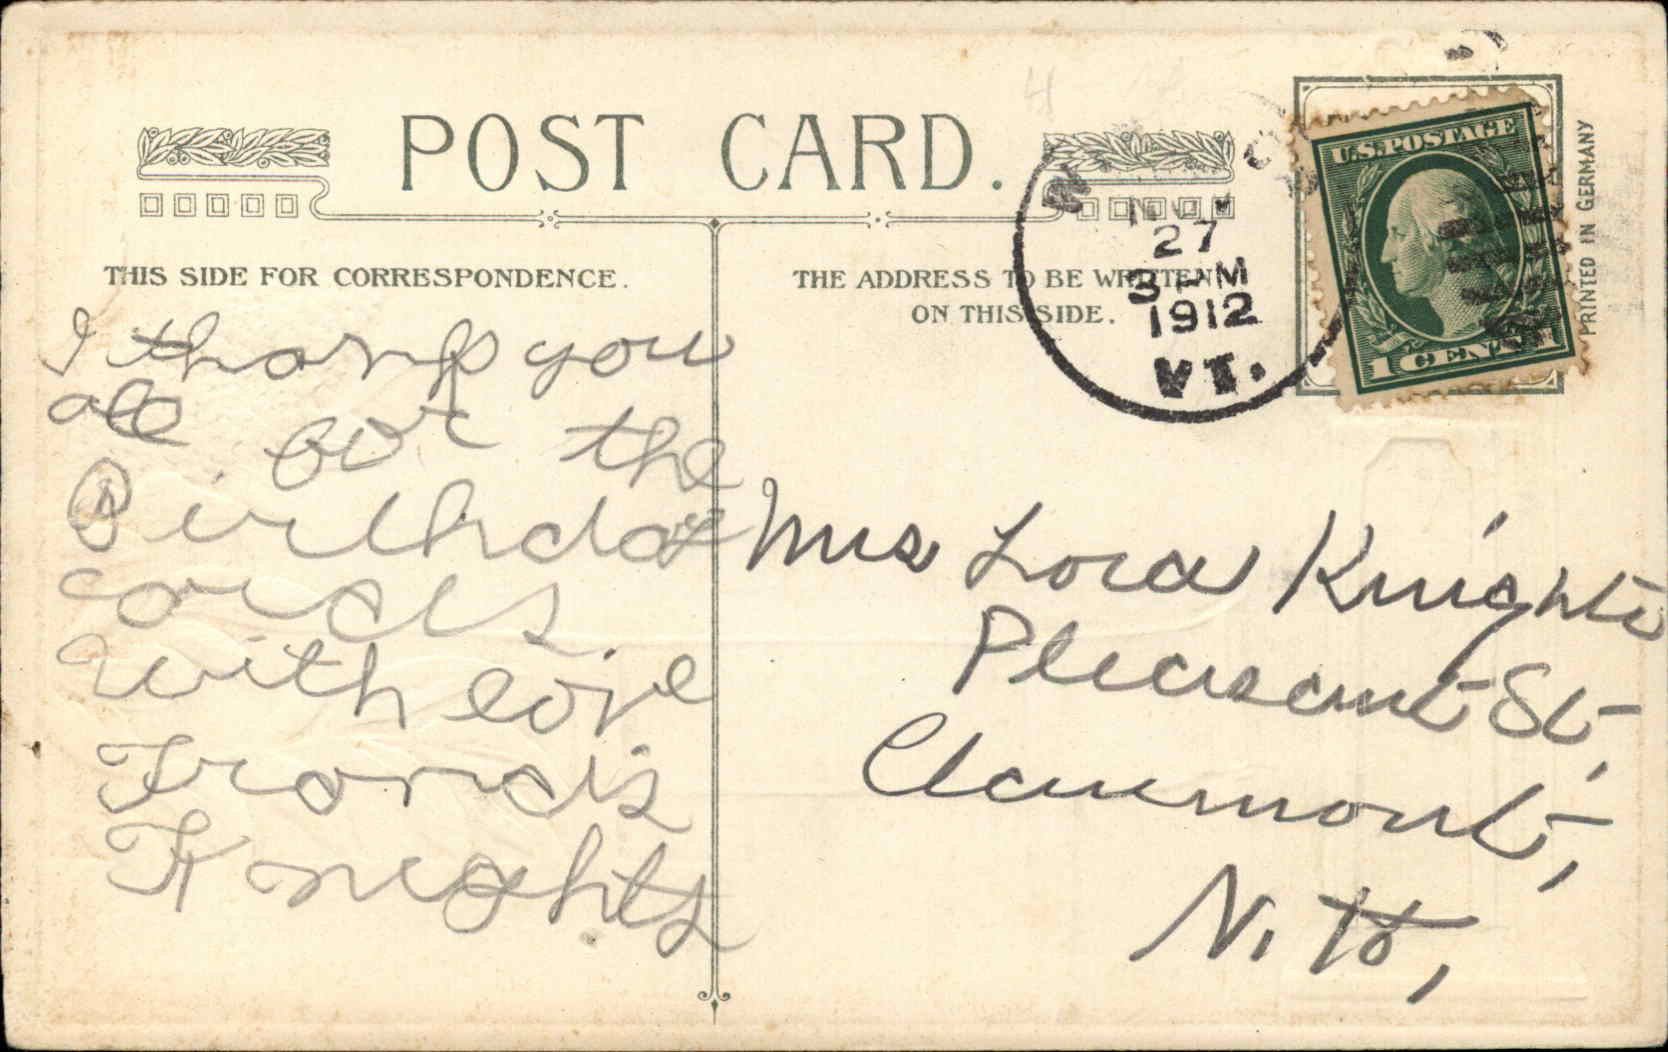 POST CARD.
THIS SIDE FOR CORRESPONDENCE.
THE ADDRESS TO BE WRITTEN
ON THIS SIDE.
NOV
27
3 PM
1912
VT.
U.S. POSTAGE
1 CENT 1
PRINTED IN GERMANY
I thank you
all for the
Birthday
cards
with love
Francis
Knights
Mrs Lora Knights
Pleasant St,
Claremont,
N. H,